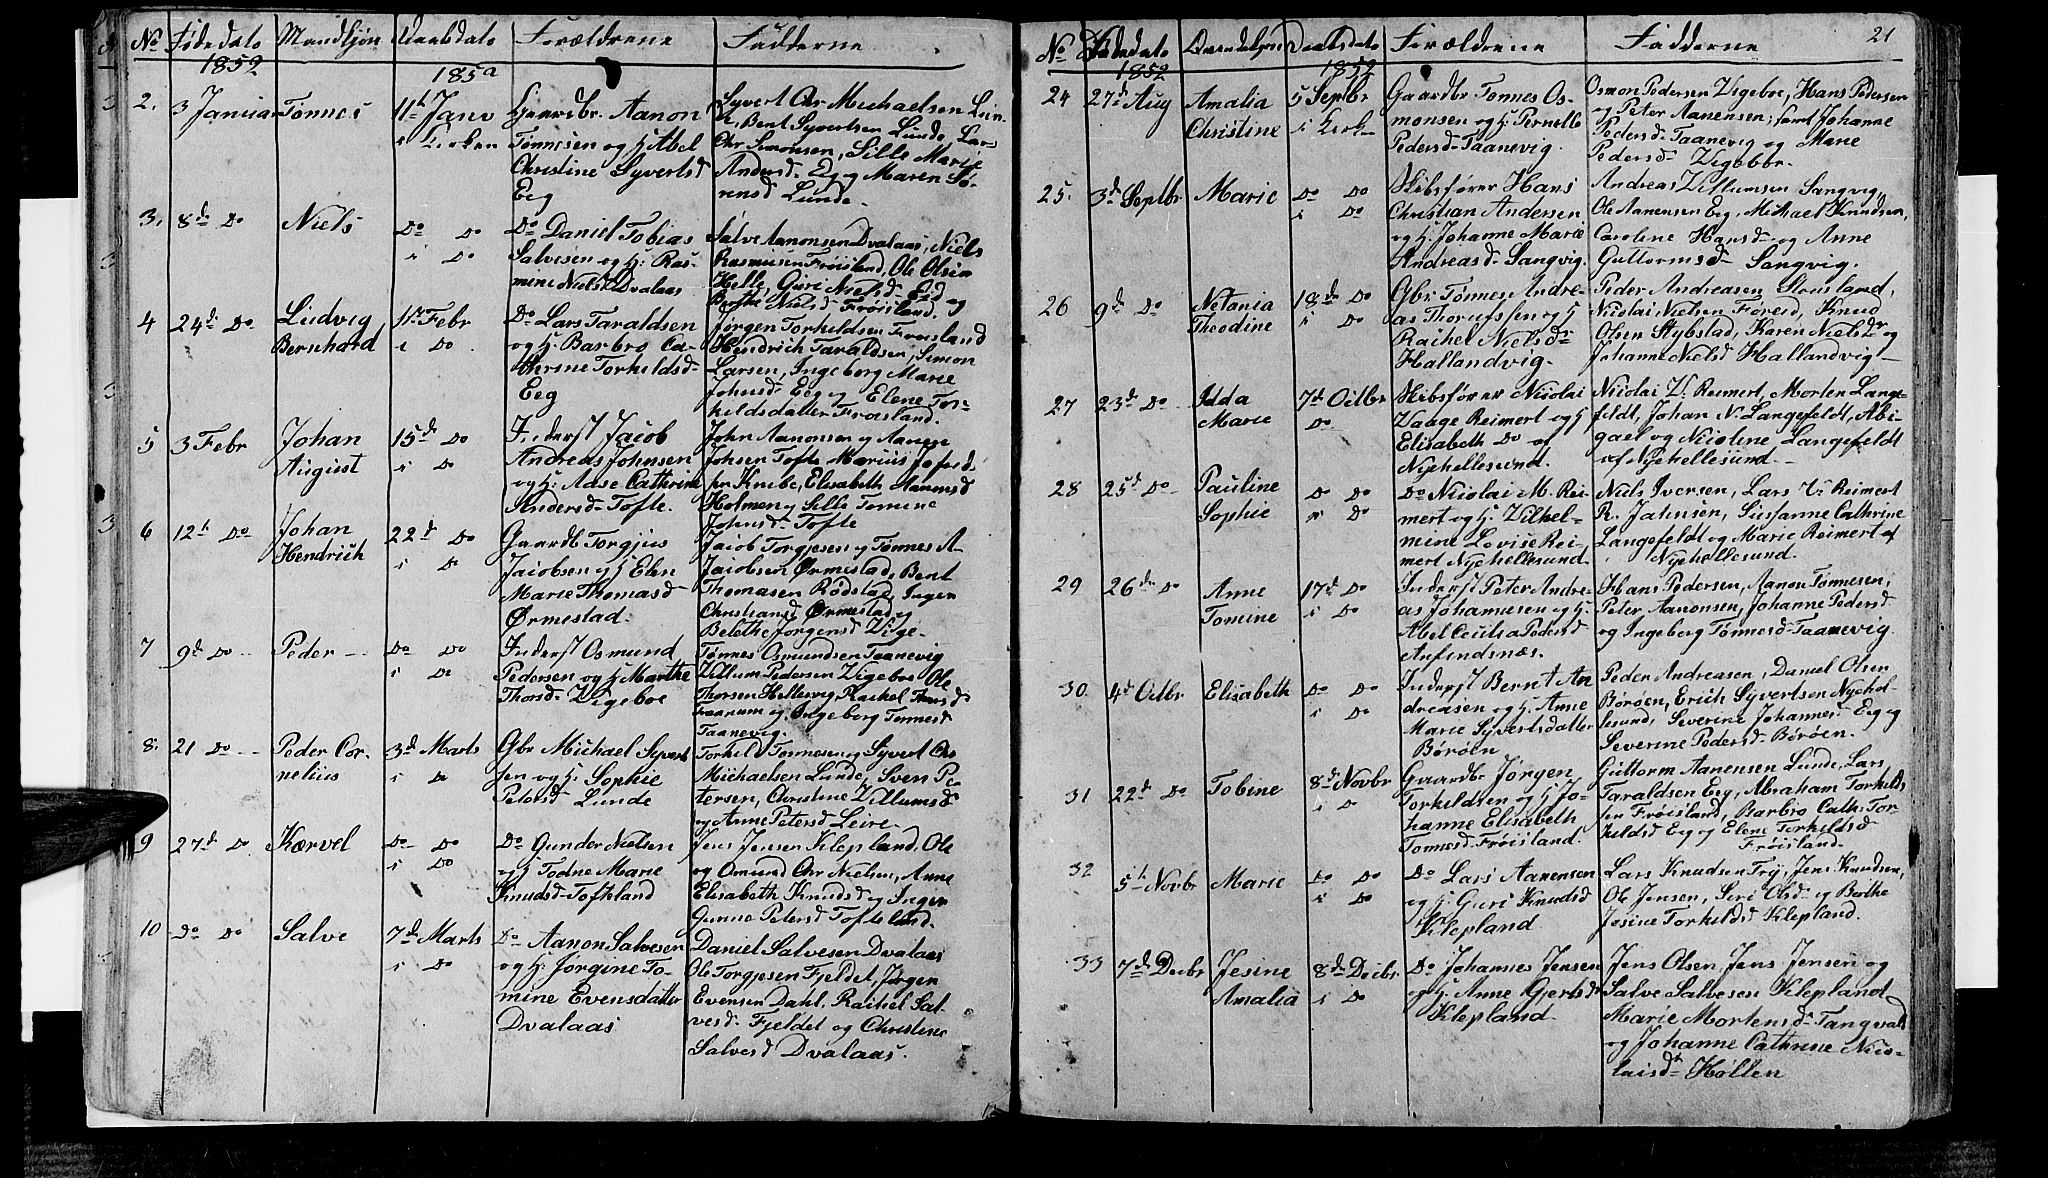 No Fødedato Mandkjøn Daabsdato Forældrene Fadderne
1852 1852
2. 3 Januar Tønnes 11te Janv i Kirken
Gaardbr. Aanon
Tønnesen og H. Abel
Christine Syvertsd
Eeg
Syvert Chr Michaelsen Lun-
de, Bent Syvertsen Lunde, Lars
Chr Simonsen, Sille Marie
Andersd- Eg og Maren Sø-
rensd Lunde.
3. 8de Do Niels Do Do i Do
Do Daniel Tobias
Salvesen og H. Ras-
mine Nielsd Dvalaas
Salve Aanonsen Dvalaas, Niels
Rasmusen Frøisland, Ole Olsen
Helle, Guri Nielsd Eg og
Berthe Nielsd Frøisland.
4 24de Do Ludvig Bernhard 1ste Febr i Do
Do Lars Taraldsen
og H. Barbro Ca-
thrine Torkildsd-
Eeg
Jørgen Torkildsen Frøisland
Hendrich Taraldsen, Simon
Larsen, Ingeborg Marie
Johnsd- Eeg og Elene Tor-
kildsdatter Frøisland.
5 3 Febr Johan August 15de Do i Do
Inderst Jacob
Andreas Johnsen
og H. Aase Cathrine
Andersd- Tofte.
John Aanonsen og Aanen
Johsen Tofte Marius
Knibe, Elisabeth Aanensd
Holmen og Sille Tomine
Johnsd- Tofte
6 12te Do Johan Hendrich 22de Do i Do
Gaardb Torgjus
Jacobsen og H Elen
Marie Thomasd
Ørmestad.
Jacob Torgjesen og Tønnes A-
Jacobsen Ørmestad, Bent
Thomasen Rødstad, Inger
Christiansd Ørmestad og
Belethe Jørgensd Vige-
7 9de Do Peder Do Do i Do
Inderst Osmund
Pedersen og H Marthe
Thorsd- Vigeboe
Tønnes Osmundsen Taanevig
Villum Pedersen Vigeboe Ole
Thorsen Hellevig, Rachel Thorsd
Faarum og Ingeborg Tønnesd
Taanevig.
8. 21 Do Peder Cor-
nelius 3de Marts i Do
Gbr Michael Syvert
sen og H: Sophie
Petersd Lunde
Torkild Tønnesen og Syvert Chr
Michaelsen Lunde, Sven Pe-
tersen, Christine Villumsd
og Anne Petersd Leire.
9 27de Do Kærvel Do Do i Do
Do Gunder Nielsen
og H Todne Marie
Knudsd- Tofteland
Jens Jensen Klepland, Ole
og Omund Chr Nielsen, Anne
Elisabeth Knudsd og Inger
Gunne Petersd Tofteland.
10 Do Do Salve 7de Marts i Do
Do Aanon Salvesen
og H: Jørgine To-
mine Evensdatter
Dvalaas
Daniel Salvesen Dvalaas
Ole Torgjesen Fjeldet, Jørgen
Evensen Dahl, Rachel Sal-
vesd- Fjeldet og Christine
Salvesd Dvalaas.
21
No Fødedato Qvindekjøn Daabsdato Forældrene Fadderne
1852 1852
24 27de Aug Amalia Christine 5 Septbr i Kirken
Gaardbr Tønnes Os-
monsen og H: Pernille
Pedersd- Taanevig.
Osmon Pedersen Vigeboe, Hans Pedersen
og Peter Aanensen; samt Johanne
Pedersd- Taanevig og Marie
Pedersd- Vigeboe.
25. 3de Septbr Marie Do Do i Do
Skibsfører Hans
Christian Andersen
og H: Johanne Marie
Andreasd- Sangvig.
Andreas Villumsen Sangvig,
Ole Aanensen Eeg, Michael Knudsen,
Caroline Hansd- og Anne
Guttormsd- Sangvig.
26 9de Do Notania Theodine 18de Do i Do
Gbr. Tønnes Andre-
as Thorufssen og H
Rachel Nielsd-
Hallandvig.
Peder Andreasen Skeisland,
Nicolai Nielsen Føreid, Knud
Olsen Stybstad, Karen Nielsdr og
Johanne Nielsd Hallandvig
27 23de Do Idda Marie 7de Octbr Do
Skibsfører Nicolai
Vaage Reimert og H
Elisabeth Do af
Nyehellesund.
Nicolai Vs Reimert, Morten Lange-
feldt, Johan N. Langefeldt, Abi-
gael og Nicoline Langefeldt
af Nyehellesund.
28 25de Do Pauline Sophie Do Do i Do
Do Nicolai M. Rei-
mert og H. Vilhel-
mine Lovise Rei-
mert Nyehellesund.
Niels Iversen, Lars Vs Reimert
R. Jahnsen, Susanne Cathrine
Langefeldt og Marie Reimert af
Nyehellesund.
29 26de Do Anne Tomine 17de Do i Do
Inderst Peter Andre-
as Johannesen og H.
Abel Cecilia Pedersd
Anfindsnæs.
Hans Pedersen, Aanon Tønnesen,
Peter Aanonsen, Johanne Pedersd
og Ingeborg Tønnesd- Taanevig.
30. 4de Octbr Elisabeth Do Do i Do
Inderst Bernt An
dreasen og H. Anne
Marie Syvertsdatter
Børøen
Peder Andreasen, Daniel Olsen
Børøen, Erich Syvertsen Nyehel-
lesund, Severine Johannesd- Eeg og
Severine Pedersd- Børøen.
31 22de Do Tobine 8de Novbr i Do
Gaardbr Jørgen
Torkildsen og H. Jo-
hanne Elisabeth
Tønnesd- Frøisland.
Guttorm Aanensen Lunde, Lars
Taraldsen Eeg, Abraham Torkild-
sen Frøisland, Barbro Cath: Tor-
kildsd Eeg og Elene Torkildsd
Frøisland.
32 5te Novbr Marie Do Do i Do
Do Lars Aanensen
og H: Guri Knudsd
Klepland
Lars Knudsen Try, Jens Knudsen,
Ole Jensen, Siri Olsd- og Berthe
Jesine Torkildsd Klepland.
33 7de Decbr Jesine Amalia 8de Decbr i Do
Do Johannes Jensen
og H. Anne Gjertsd
Klepland.
Jens Olsen, Jens Jensen og
Salve Salvesen Klepland
Marie Mortensd- Tangvald
og Johanne Cathrine Nico-
laisd- Høllen